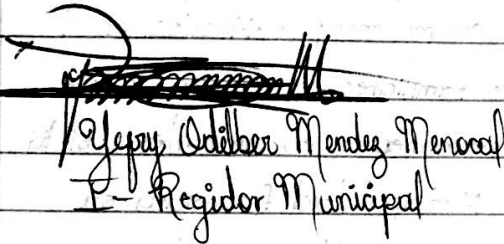 Yefry Odilber Mendez Menocal
I- Regidor Municipal